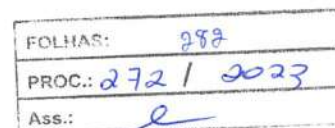 FOLHAS: 282
PROC.: 272 / 2023
Ass.: